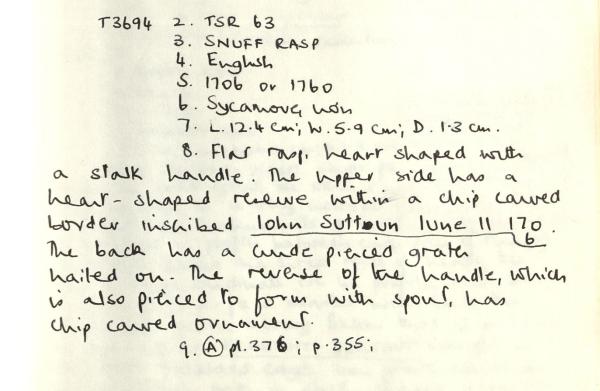 T3694 2. TSR 63
3. SNUFF RASP
4. English
5. 1706 or 1760
6. Sycamore, iron
7. L. 12.4 cm; W. 5.9 cm; D. 1.3 cm.
8. Flat rasp, heart shaped with
a stalk handle. The upper side has a
heart-shaped reserve within a chip carved
border inscribed Iohn Suttoun Iune 11 170
6
The back has a crude pierced grater
nailed on. The reverse of the handle, which
is also pierced to form with spout, has
chip carved ornament.
9. (A) pl. 376; p. 355;